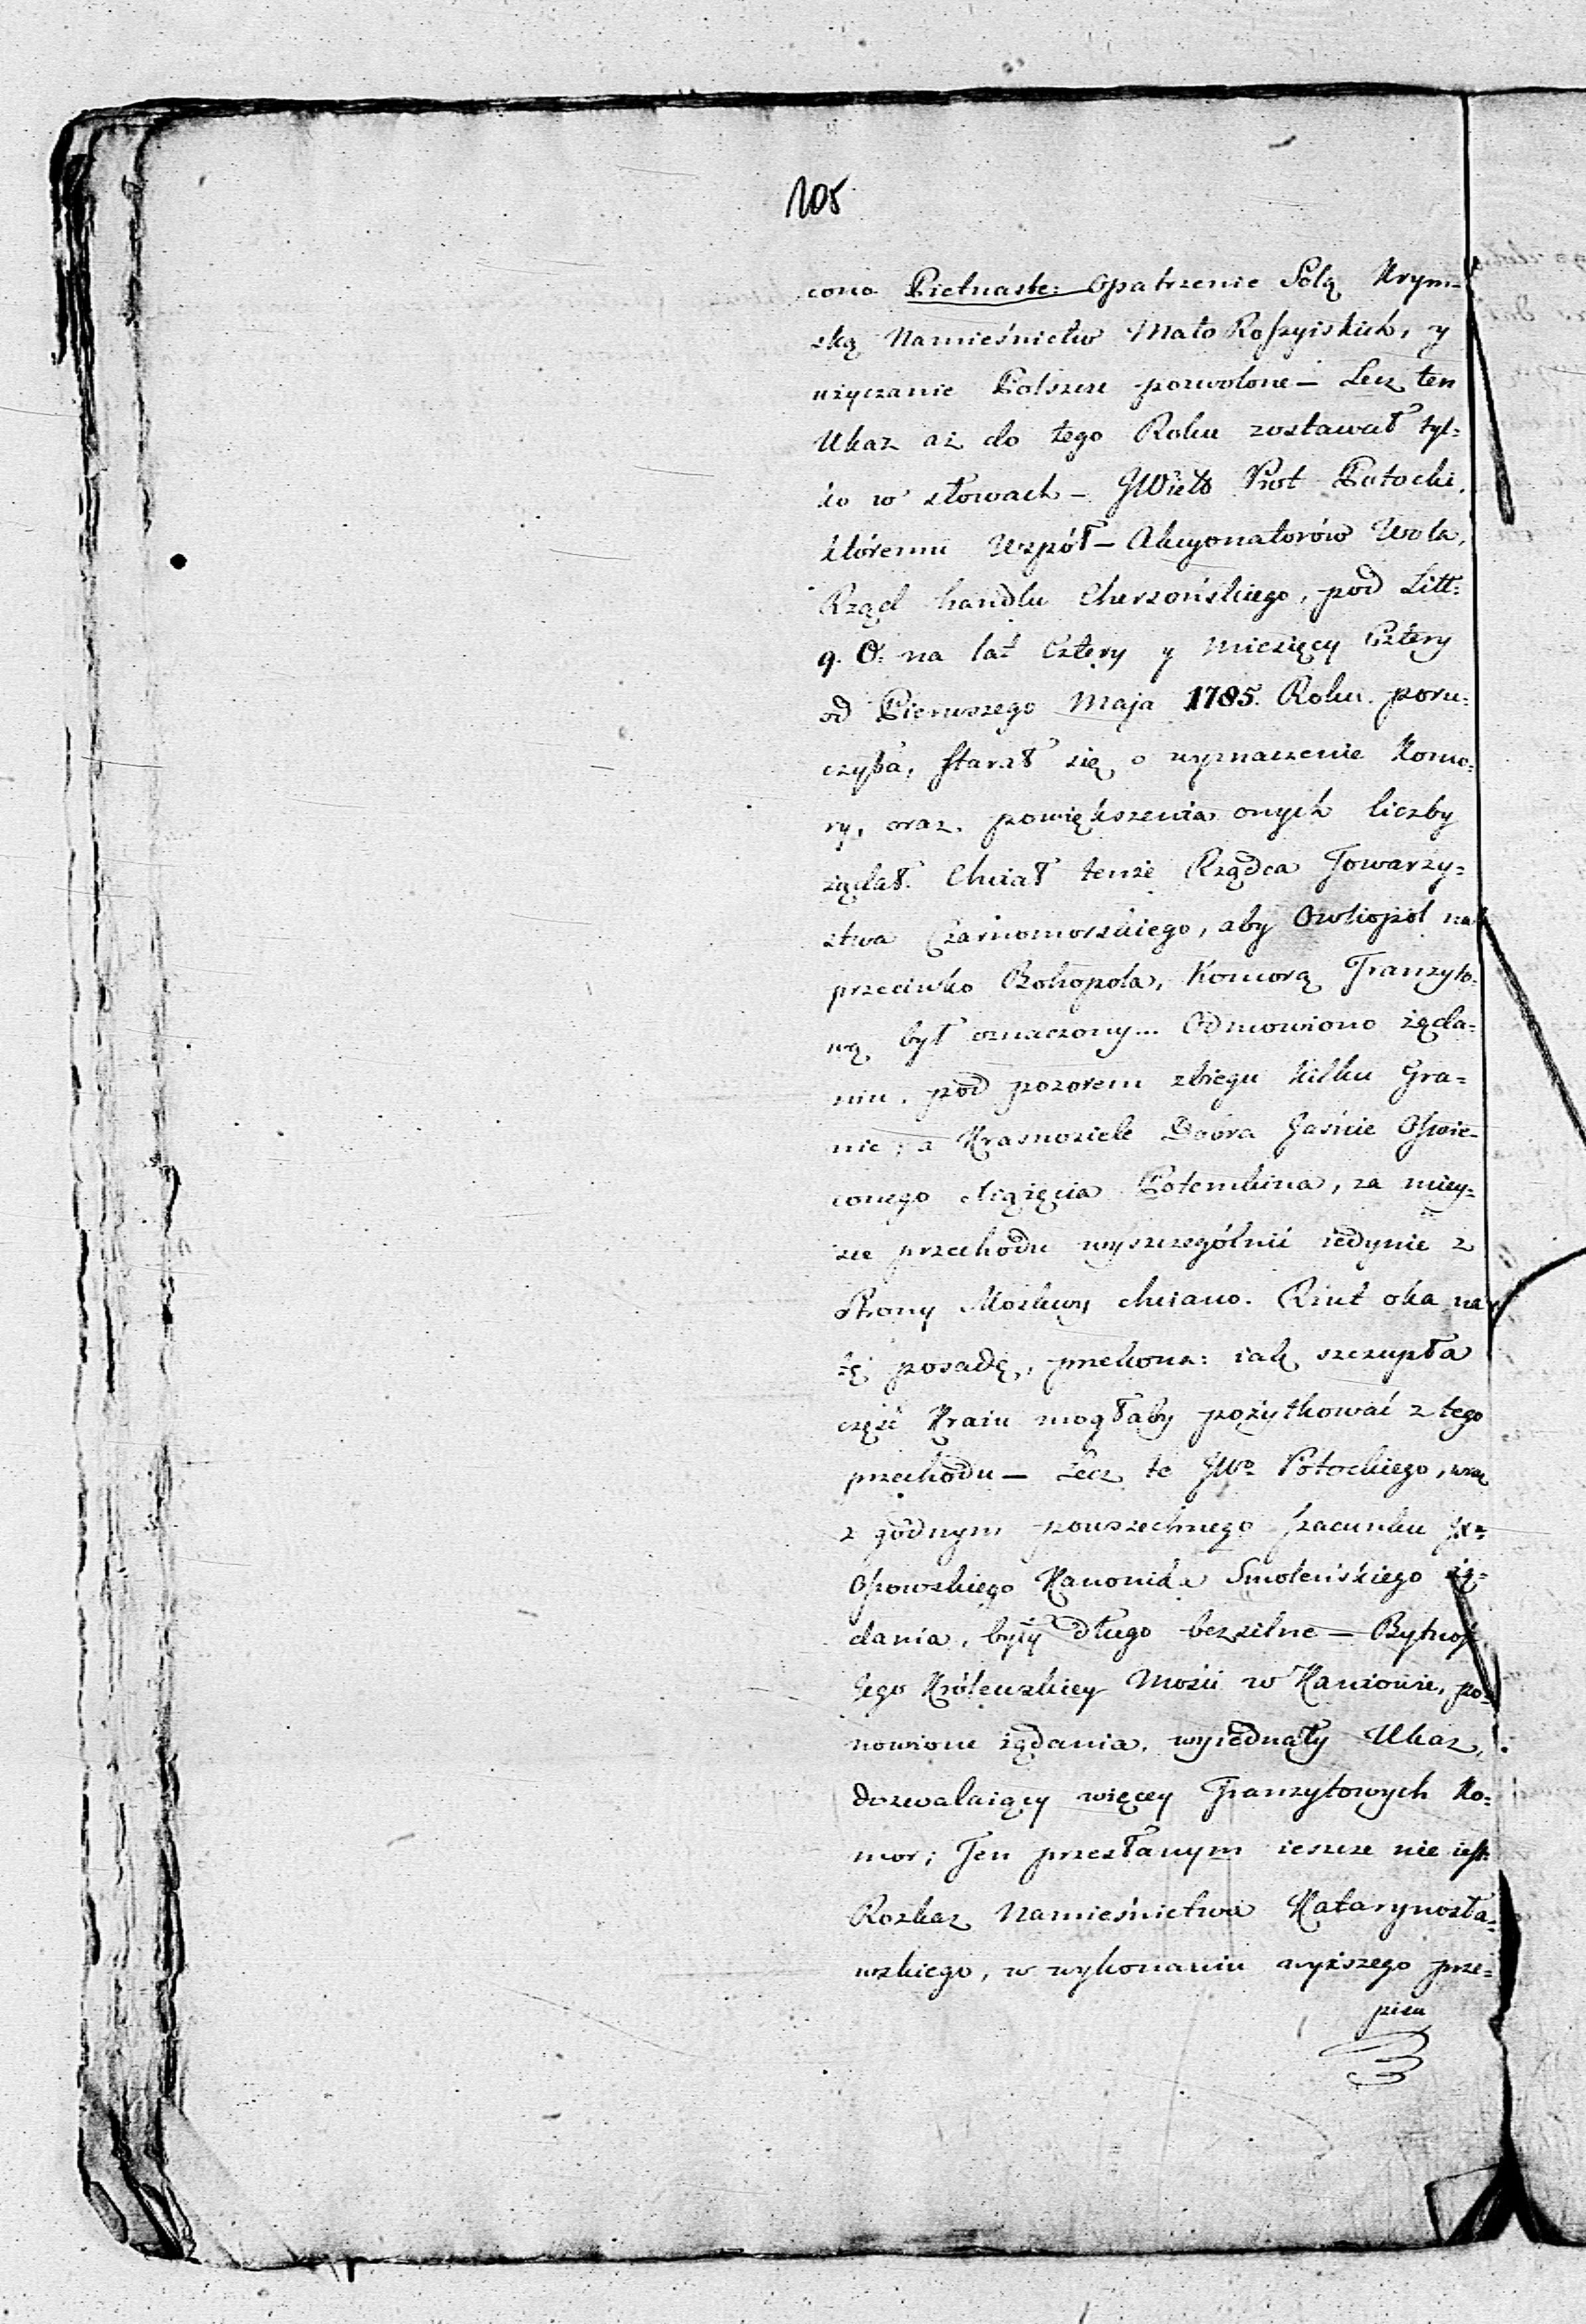 105
cono Pietnaste: Opatrzenie Solą Krym-
ską Namieśnictw Mało Roſzyiskich, y
użyczanie Polszcze pozwolone – Lecz ten
Ukaz aż do tego Roku zostawał tyl:
ko w słowach – JWielo Prot Potocki,
któremu Współ – Akcyonatorów Wola,
Rząd handlu Chersońskiego, pod Litt:
q. O: na lat Cztery y Miesięcy Cztery
od Pierwszego Maja 1785. Roku. poru:
czyła, ſtarał się o wyznaczenie Komo:
ry, oraz. powiększenia onych liczby
żądał. Chciał tenże Rządca Towarzy:
stwa Czarnomorskiego, aby Owliopol na
przeciwko Bohopola, Komorą Tranzyto:
wą był oznaczony... Odmowiono żąda:
niu. pod pozorem zbiegu kilku Gra:
nic; a Krasnosiele Dobra Jaśnie Oſwie-
conego Xiążęcia Potemkina, za miey:
sce przechodu wyszczególnić iedynie z
Strony Moskwy chciano. Rzut oka na
tę posadę, przekona: iak szczupła
część Kraiu mogłaby pożytkować z tego
przechodu – Lecz te JWo Potockiego, wraz
z godnym powszechnego ſzacunku Jxa
Oſsowskiego Kanonika Smoleńskiego żą:
dania, były długo bezsilne – Bytność
Jego Królewskiey Mości w Kaniowie, po:
nowione żądania, wyiednały Ukaz,
dozwalaiący więcey Tranzytowych Ko:
mor; Ten przesłanym ieszcze nie ieſt.
Rozkaz Namieśnictwa Katarynosła:
wskiego, w wykonaniu wyższego prze:
pisu